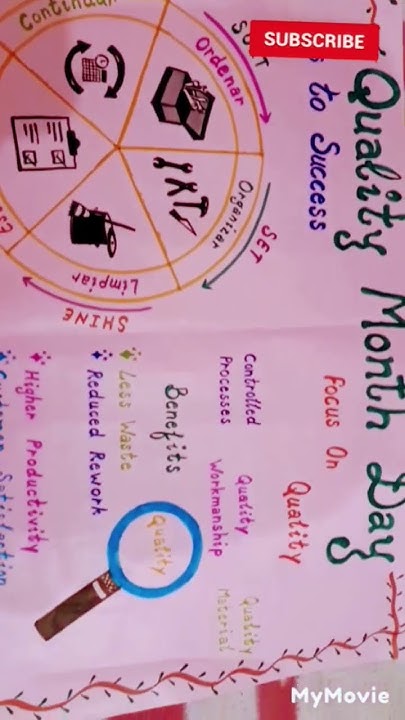 SUBSCRIBE
Quality Month Day
to Success
Focus On
Quality
Controlled
Processes
Quality
Workmanship
Quality
Material
Benefits
Less Waste
Reduced Rework
Higher Productivity
Quality
Ordenar
SET
Organizar
SHINE
Limpiar
MyMovie